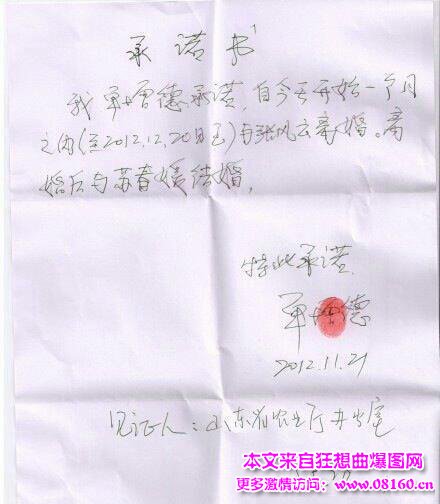 承诺书
我单增德承诺,自今天开始一个月
之内(至2012.12.20日至)与张凤云离婚。离
婚后与苏春媛结婚。
特此承诺
单增德
2012.11.21
见证人:山东省农业厅办公室
本文来自狂想曲爆图网
更多激情访问:www.08160.cn